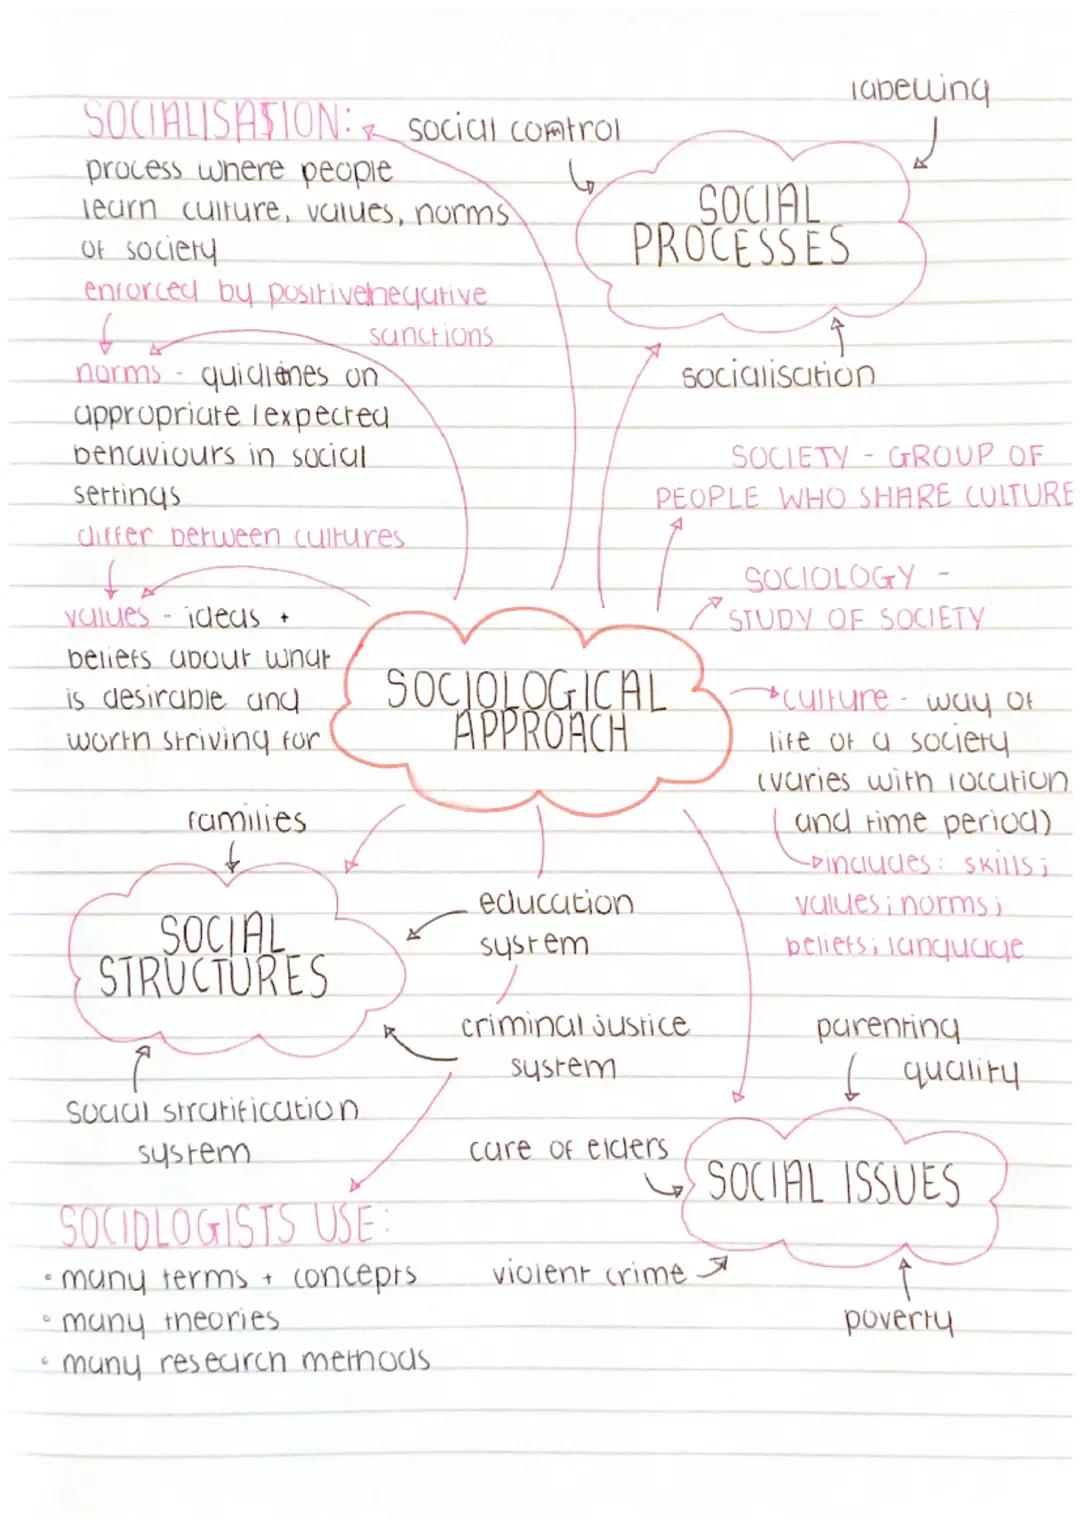 SOCIALISATION:
process where people
learn culture, values, norms
of society
enforced by positive/negative
sanctions
norms - guidlines on
appropriate / expected
behaviours in social
settings
differ between cultures
values - ideas +
beliefs about what
is desirable and
worth striving for
social control
labelling
SOCIAL
PROCESSES
socialisation
SOCIETY - GROUP OF
PEOPLE WHO SHARE CULTURE
SOCIOLOGY -
STUDY OF SOCIETY
SOCIOLOGICAL
APPROACH
culture - way of
life of a society
(varies with location
and time period)
includes: skills;
values; norms;
beliefs; language
families
SOCIAL
STRUCTURES
education
system
criminal justice
system
social stratification
system
parenting
quality
care of elders
SOCIAL ISSUES
violent crime
poverty
SOCIOLOGISTS USE:
• many terms + concepts
• many theories
• many research methods